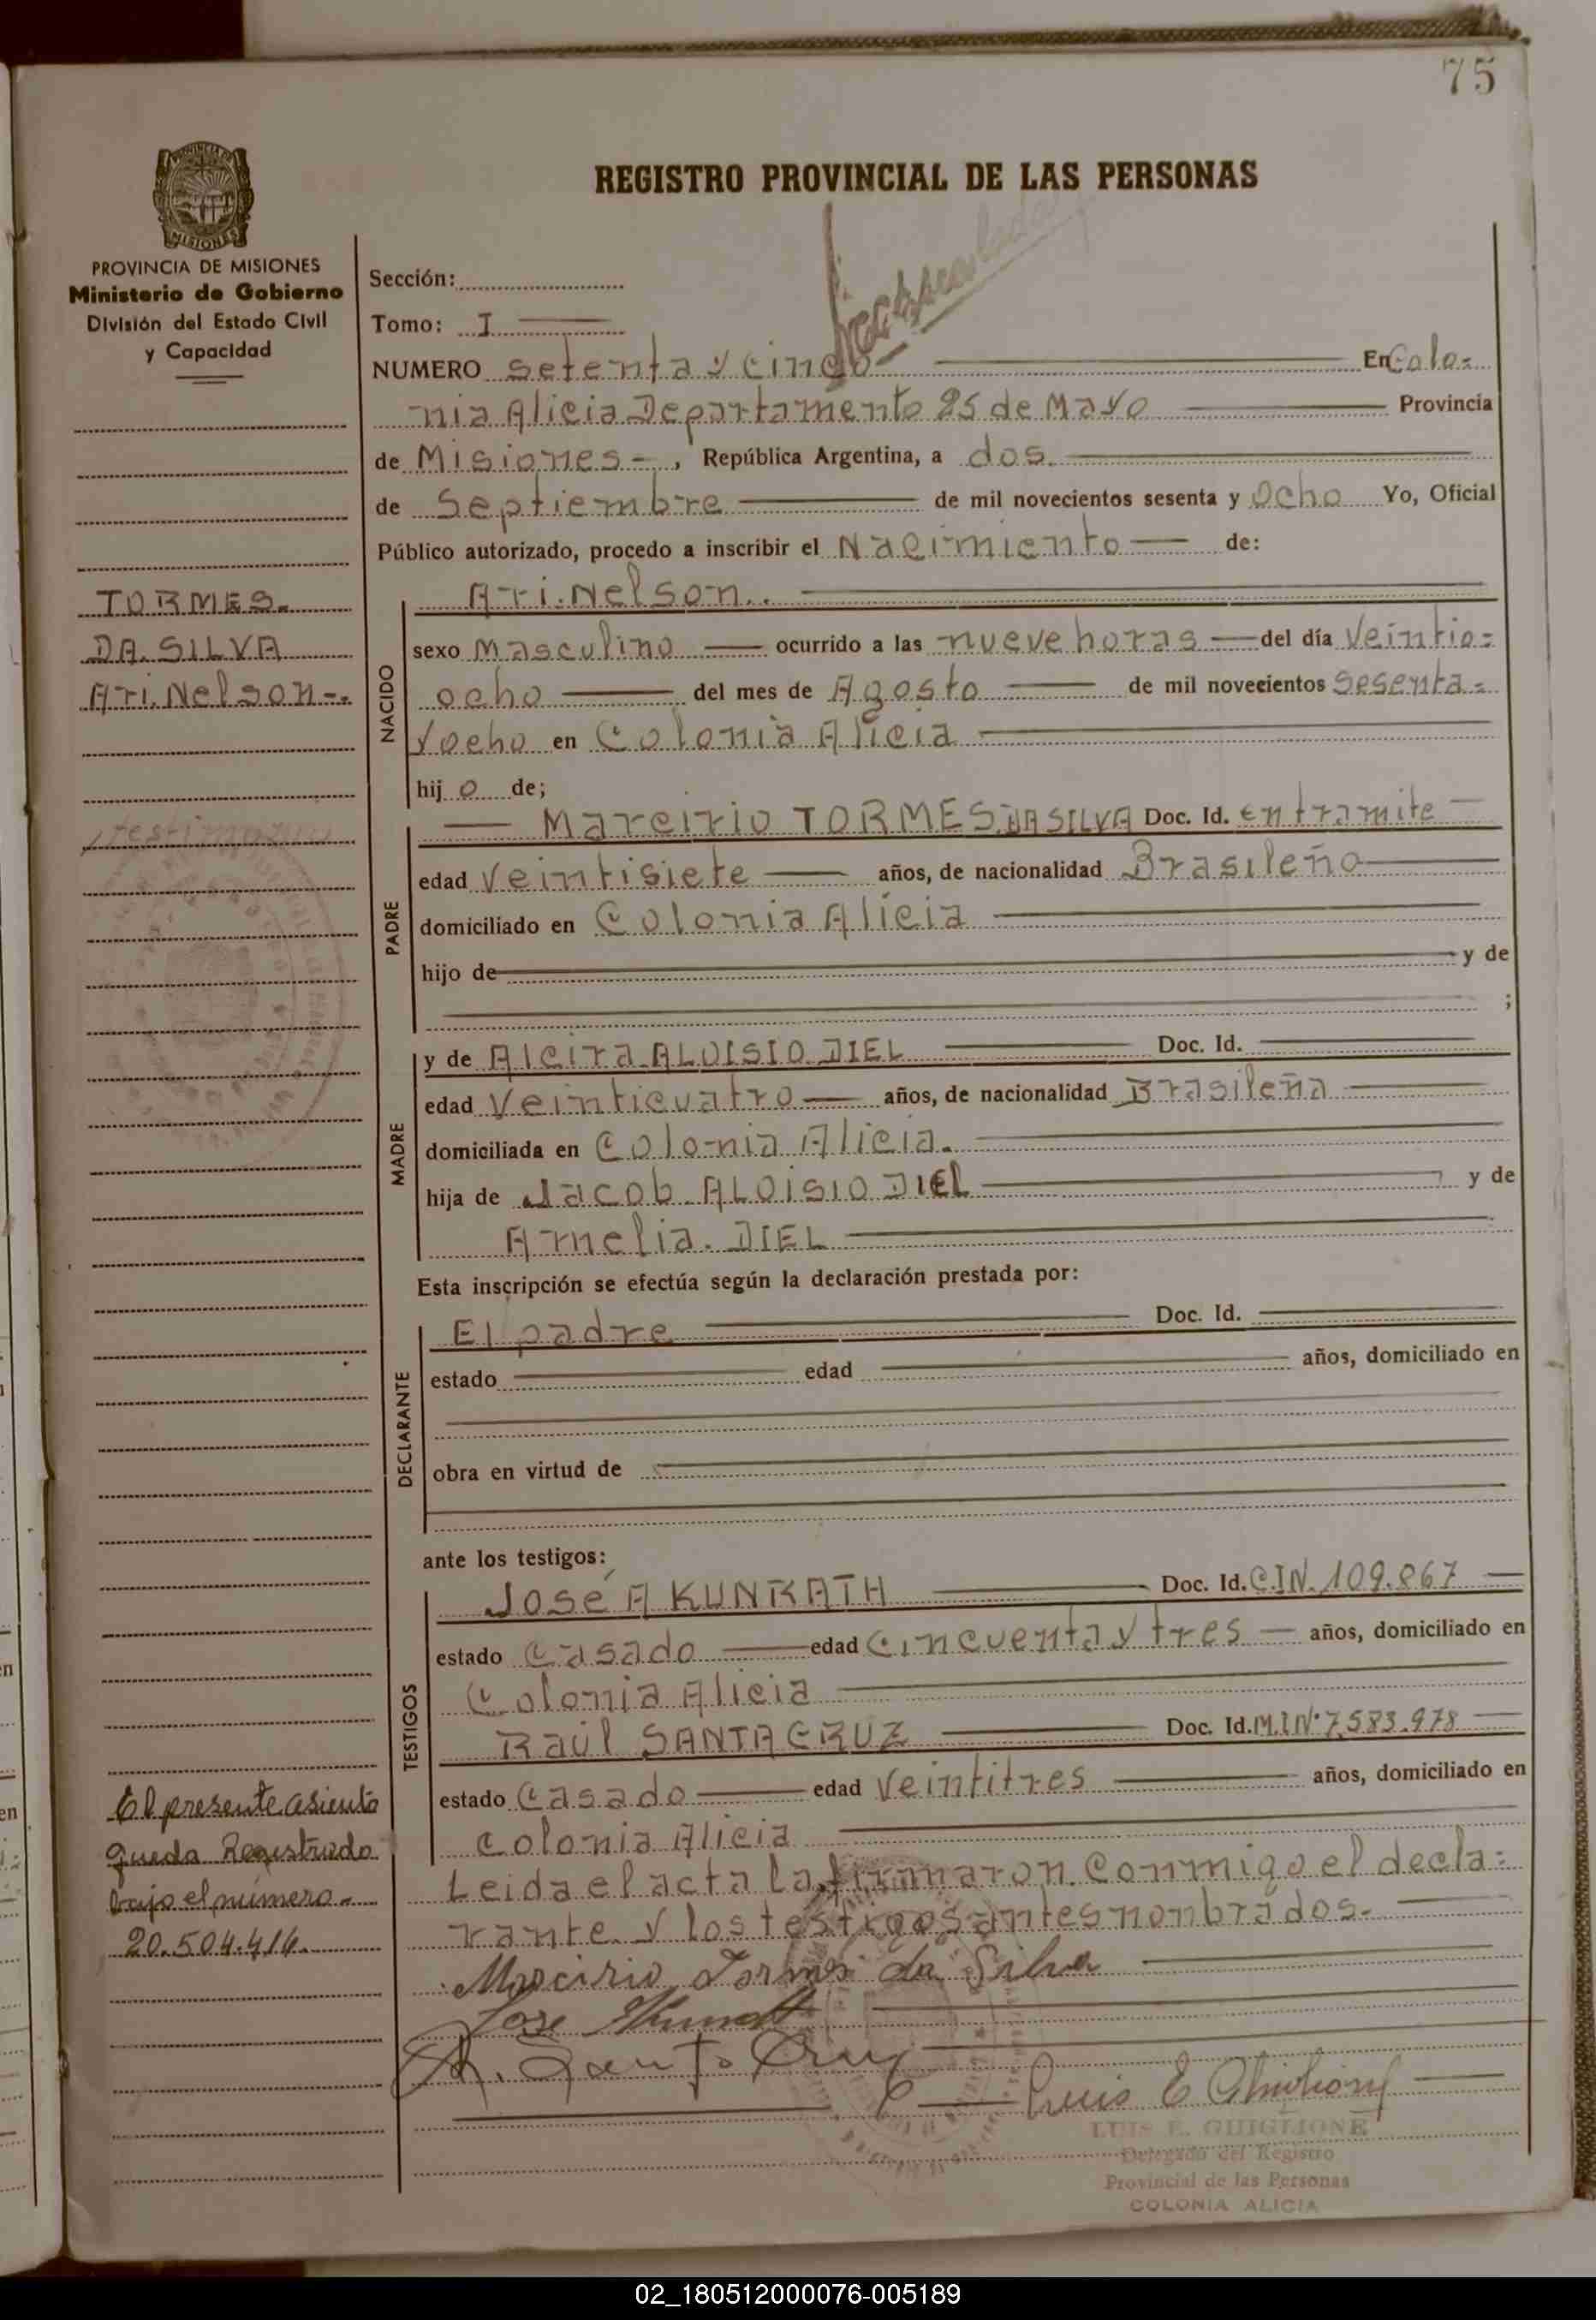 75
REGISTRO PROVINCIAL DE LAS PERSONAS
PROVINCIA DE MISIONES
MISIONES
PROVINCIA DE MISIONES
Ministerio de Gobierno
División del Estado Civil
y Capacidad
Sección:
Tomo: I
NUMERO setenta y cinco En Colo=
nia Alicia Departamento 25 de Mayo Provincia
de Misiones-, República Argentina, a dos.
de Septiembre de mil novecientos sesenta y ocho Yo, Oficial
Público autorizado, procedo a inscribir el Nacimiento de:
TORMES.
DA. SILVA
Ari. Nelson-.
testimonio
NACIDO
Ari. Nelson..
sexo Masculino ocurrido a las nueve horas del día Veintio=
ocho del mes de Agosto de mil novecientos sesenta=
y ocho en Colonia Alicia
hijo de;
PADRE
Marcirio TORMES DA SILVA Doc. Id. en tramite
edad Veintisiete años, de nacionalidad Brasileño
domiciliado en Colonia Alicia
hijo de y de
;
MADRE
y de Alcira ALOISIO DIEL Doc. Id.
edad Veinticuatro años, de nacionalidad Brasileña
domiciliada en Colonia Alicia.
hija de Jacob ALOISIO DIEL y de
Arnelia. DIEL
Esta inscripción se efectúa según la declaración prestada por:
DECLARANTE
El padre Doc. Id.
estado edad años, domiciliado en
obra en virtud de
ante los testigos:
TESTIGOS
José A KUNRATH Doc. Id. C.I.N. 109.867
estado Casado edad Cincuenta y tres años, domiciliado en
Colonia Alicia
Raúl SANTA CRUZ Doc. Id. M.I.N° 7.583.978
estado Casado edad Veintitres años, domiciliado en
Colonia Alicia
Leida el acta la firmaron conmigo el decla=
rante y los testigos antes nonbrados.
El presente asiento
queda Registrado
bajo el número-
20.504.414.
Marcirio Tormes da Silva
Jose
R. Santa Cruz
Luis E Ghiglione
LUIS E. GHIGLIONE
Delegado del Registro
Provincial de las Personas
COLONIA ALICIA
02_180512000076-005189